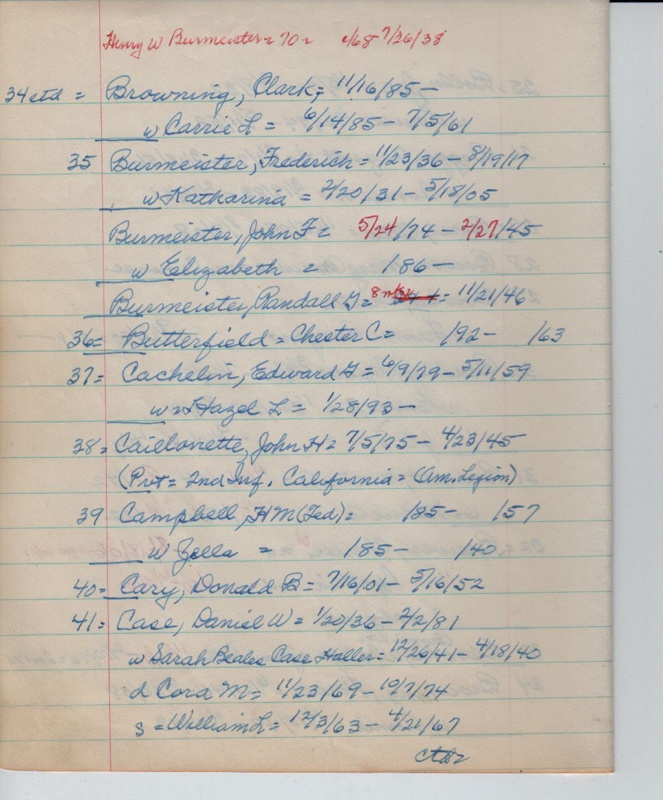 Henry W Burmeister = 70 = 2/68 - 7/26/38
34 ctd = Browning, Clark, = 11/16/85 -
w Carrie L = 6/14/85 - 7/5/61
35 Burmeister, Frederich = 11/23/36 - 8/19/17
w Katharina = 2/20/31 - 5/18/05
Burmeister, John F = 5/24/74 - 2/27/45
w Elizabeth = 186 -
Burmeister, Randall G = 8 = 11/21/46
36 = Butterfield = Chester C = /92 - /63
37 = Cachelin, Edward G = 6/9/79 - 5/11/59
w = Hazel L = 1/28/93 -
38 = Caillonette, John H = 7/5/75 - 4/23/45
(Pvt = 2nd Inf. California = (Am. Legion)
39 Campbell, H M (Ted) = /85 - /57
w Zella = /85 - /40
40 = Cary, Donald B = 7/16/01 - 5/16/52
41 = Case, Daniel W = 1/20/36 - 2/2/81
w Sarah Beales Case Haller = 12/26/41 - 4/18/40
d Cora M = 11/23/69 - 10/7/74
s = William L = 12/3/63 - 4/21/67
ctd =